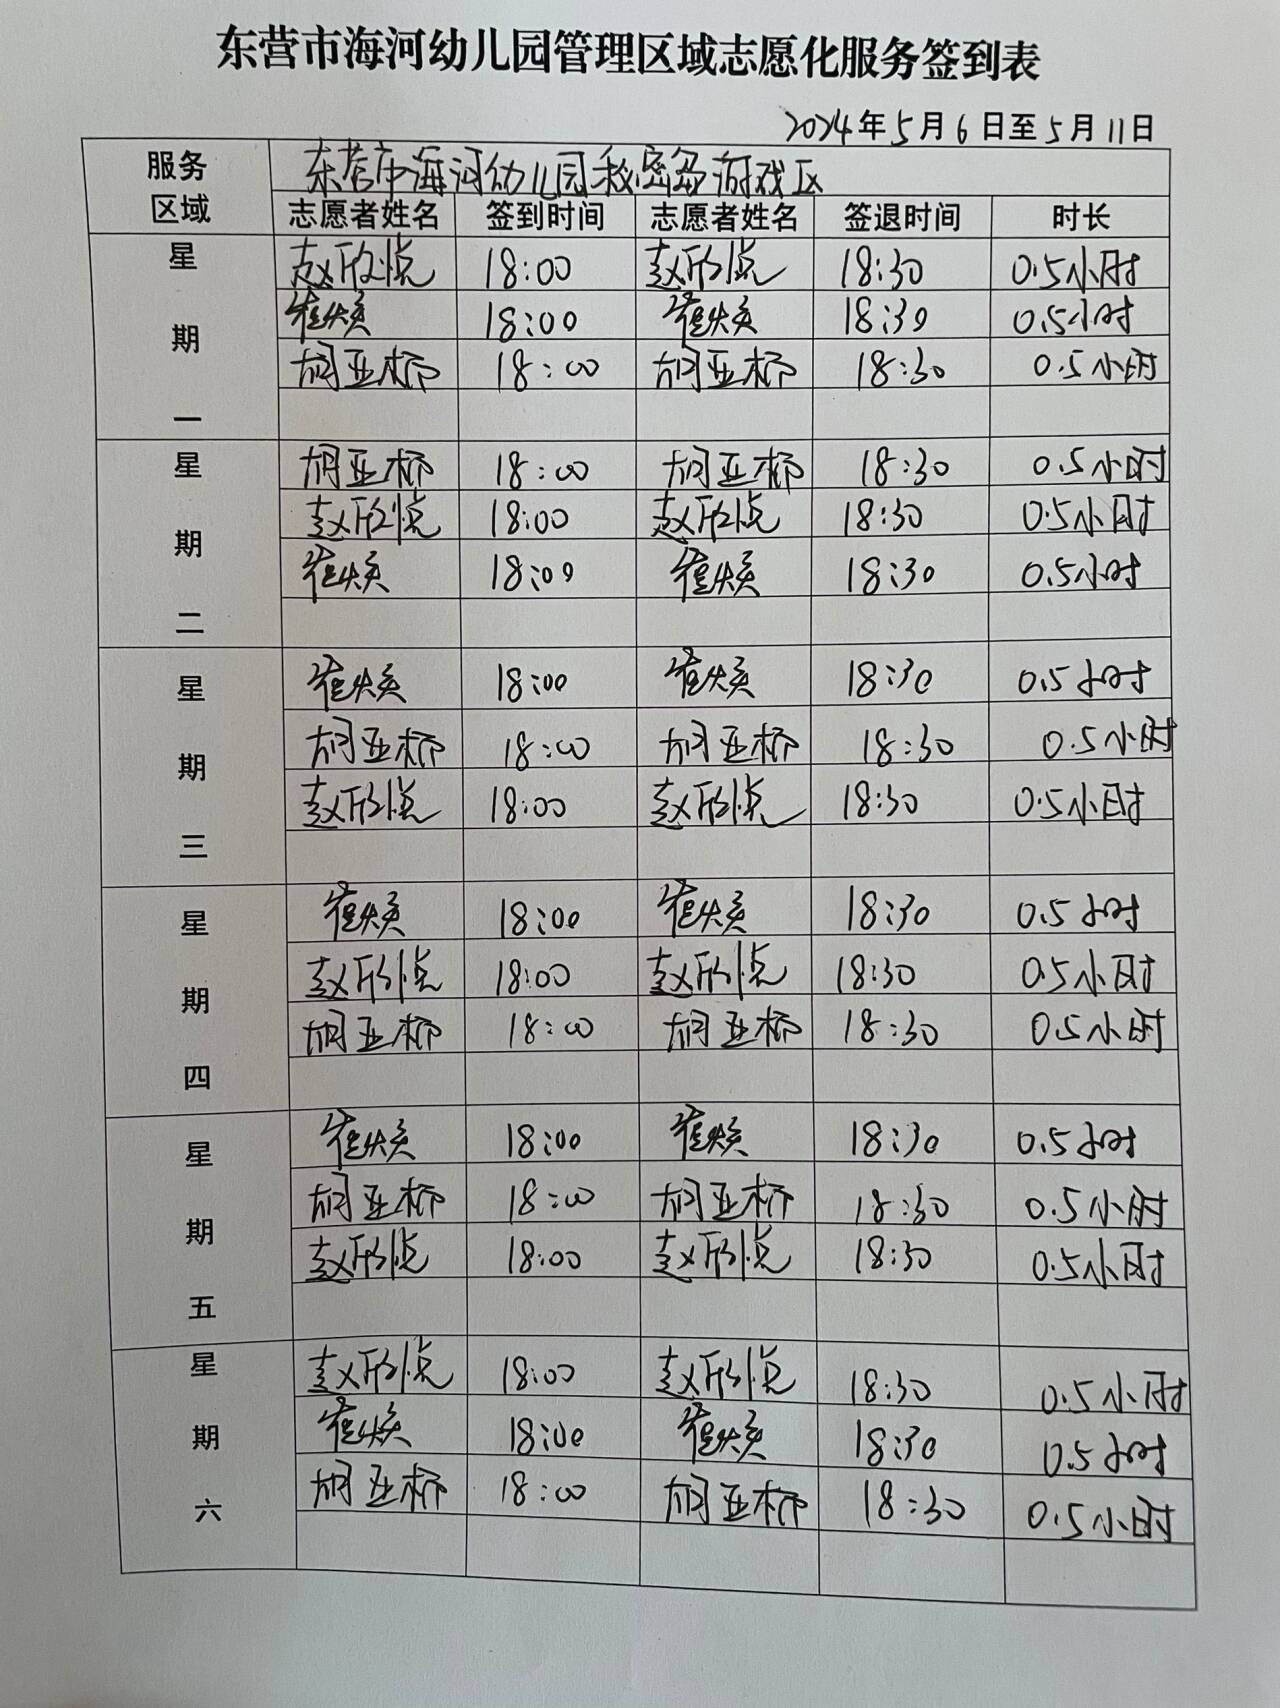 东营市海河幼儿园管理区域志愿化服务签到表
2024年5月6日至5月11日
服务区域 东营市海河幼儿园秘密岛游戏区
志愿者姓名 签到时间 志愿者姓名 签退时间 时长
星期一
赵欣悦 18:00 赵欣悦 18:30 0.5小时
崔焕 18:00 崔焕 18:30 0.5小时
胡亚桥 18:00 胡亚桥 18:30 0.5小时
星期二
胡亚桥 18:00 胡亚桥 18:30 0.5小时
赵欣悦 18:00 赵欣悦 18:30 0.5小时
崔焕 18:00 崔焕 18:30 0.5小时
星期三
崔焕 18:00 崔焕 18:30 0.5小时
胡亚桥 18:00 胡亚桥 18:30 0.5小时
赵欣悦 18:00 赵欣悦 18:30 0.5小时
星期四
崔焕 18:00 崔焕 18:30 0.5小时
赵欣悦 18:00 赵欣悦 18:30 0.5小时
胡亚桥 18:00 胡亚桥 18:30 0.5小时
星期五
崔焕 18:00 崔焕 18:30 0.5小时
胡亚桥 18:00 胡亚桥 18:30 0.5小时
赵欣悦 18:00 赵欣悦 18:30 0.5小时
星期六
赵欣悦 18:00 赵欣悦 18:30 0.5小时
崔焕 18:00 崔焕 18:30 0.5小时
胡亚桥 18:00 胡亚桥 18:30 0.5小时